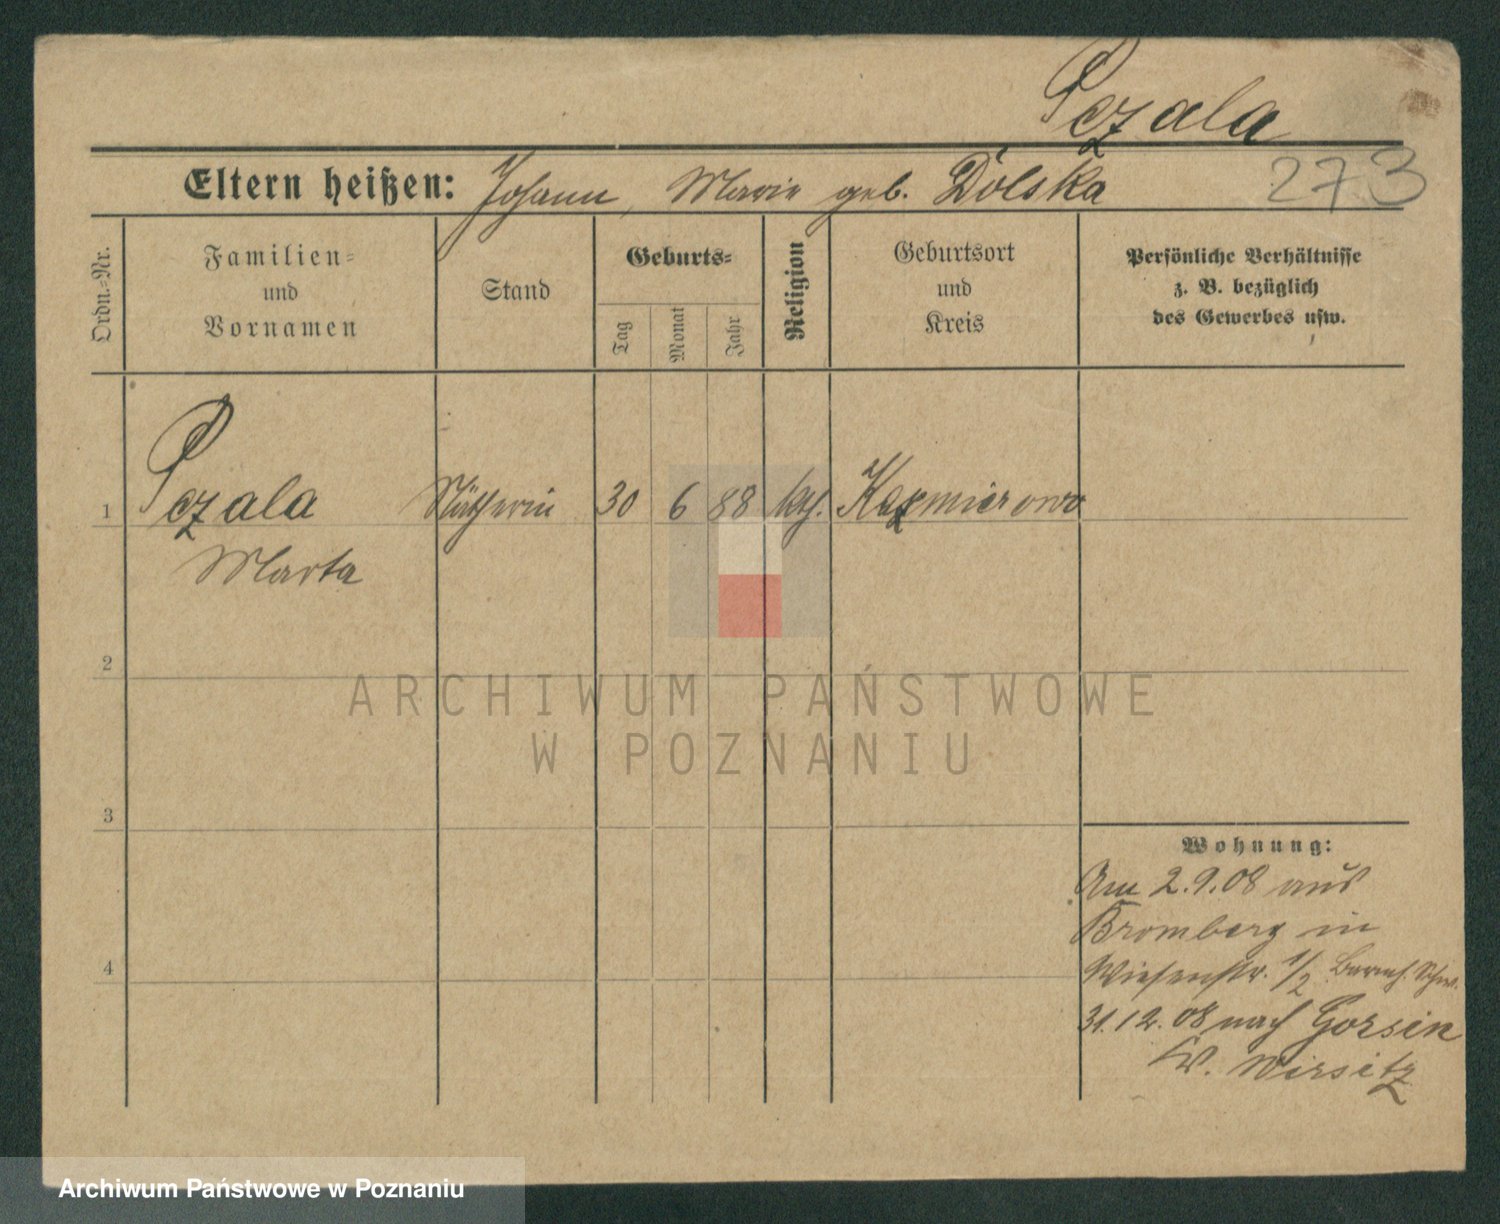 Pczala
Eltern heißen: Johann, Marie geb. Dolska
273
Ordn.-Nr.
Familien-
und
Vornamen
Stand
Geburts-
Tag
Monat
Jahr
Religion
Geburtsort
und
Kreis
Persönliche Verhältnisse
z. B. bezüglich
des Gewerbes usw.
1 Pczala Näherin 30 6 88 kth. Kazmierowo
Marta
2
ARCHIWUM PAŃSTWOWE
W POZNANIU
3
Wohnung:
Am 2.9.08 aus
Bromberg in
4
Wiesenstr. 1/2
31.12.08 nach Gorsin
Kr. Wirsitz
Archiwum Państwowe w Poznaniu